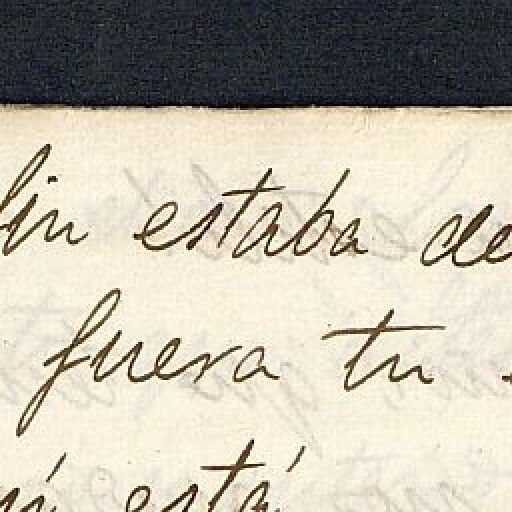 fin estaba de
fuera tu
está